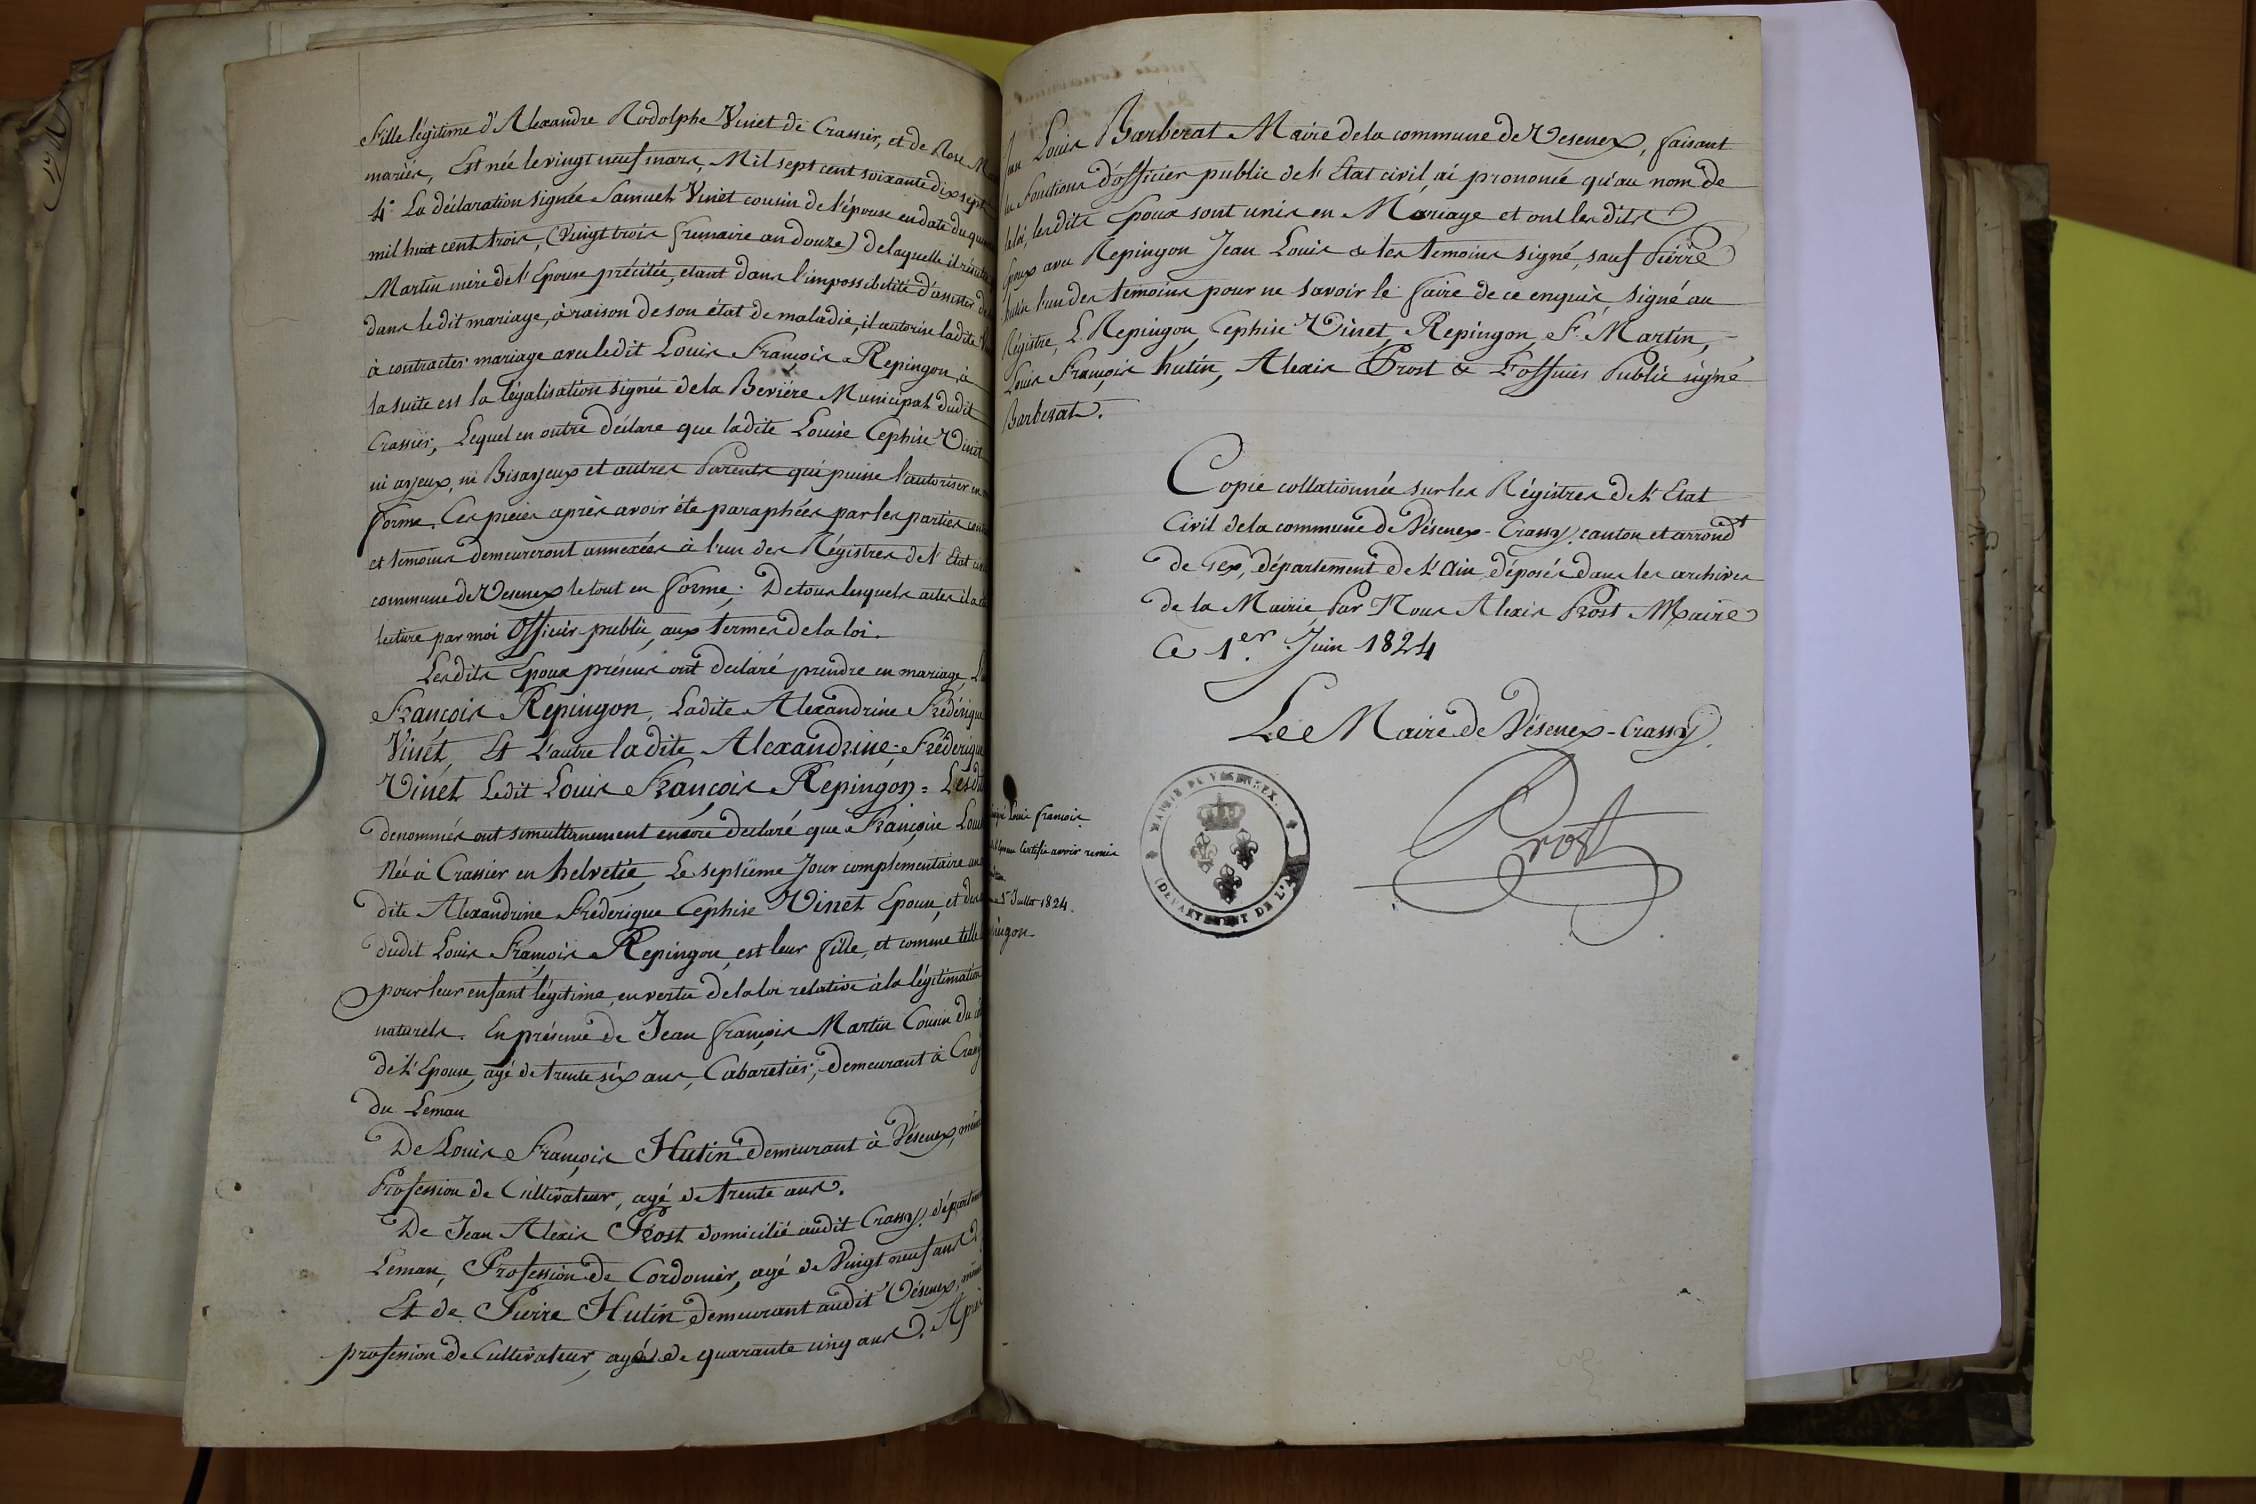 fille légitime d'Alexandre Rodolphe Vinet de Crassier, et de Rose
mariés, Est née le vingt neuf mars, Mil sept cent soixante dix sept
4.° La déclaration signée Samuel Vinet cousin de l'épouse en date du
mil huit cent trois, (Vingt trois frimaire an douze) de laquelle il résulte
Martin mère de l'Epouse précitée, étant dans l'impossibilité d'assister
dans le dit mariage, à raison de son état de maladie, il autorise ladite
à contracter mariage avec ledit Louis François Repingon, à
la suite est la légalisation signée de la Berière Municipal dudit
Crassier, Lequel en outre déclare que ladite Louise Cephise Vinet
ni ayeux, ni Bisayeux et autres Parents qui puisse l'autoriser en
forme. Ces pieces après avoir été paraphées par les parties
et temoins demeureront annexées à l'un des Régistres de l'Etat
commune de Vesenex le tout en forme; De tous lesquels actes il a
lecture par moi Officier public, aux termes de la loi.
Lesdits Epoux présens ont declaré prendre en mariage,
François Repingon, Ladite Alexandrine Fréderique
Vinet, Et L'autre ladite Alexandrine Fréderique
Vinet Ledit Louis François Repingon = Lesdits
denommés ont simultanement encore declaré que Françoise
Née à Crassier en helvetie, Le septième Jour complementaire
dite Alexandrine Fréderique Cephise Vinet Epouse, et
dudit Louis François Repingon, est leur fille, et comme telle
pour leur enfant légitime, en vertu de la loi relative à la légitimation
naturels. En présence de Jean François Martin Cousin du
de l'Epouse, agé de trente six ans, Cabaretier, demeurant à
du Léman
De Louis François Hutin demeurant à Vésenex,
Profession de Cultivateur, agé de trente ans.
De Jean Alexis Prost domicilié audit Crassy,
Leman, Profession de Cordonier, agé de Vingt neuf ans
Et de Pierre Hutin demeurant audit Vésenex,
profession de Cultivateur, agé de quarante cinq ans.
Louis Barberat Maire de la commune de Vesenex, faisant
fonctions d'officier public de l'Etat civil, ai prononcé qu'au nom de
la loi, lesdits Epoux sont unis en Mariage et ont lesdits
Epoux avec Repingon Jean Louis & les temoins signé, sauf Pierre
hutin l'un des témoins pour ne savoir le faire de ce enquis signé au
Régistre, L. Repingon, Cephise Vinet, Repingon, F. Martin,
Louis François hutin, Alexis Prost & L'officier Public signé
Barberat.
Copie collationnée sur les Régistres de l'Etat
Civil de la commune de Vésenex-Crassy, canton et arrond.t
de Gex, département de l'Ain, déposés dans les archives
de la Mairie, Par Nous Alexis Prost Maire
Ce 1.er Juin 1824
Le Maire de Vésenex-Crassy
Louis francois
certifie avoir remis
Juillet 1824.
MAIRIE DE VESENEX.
(DEPARTEMENT DE L'AIN)
Prost